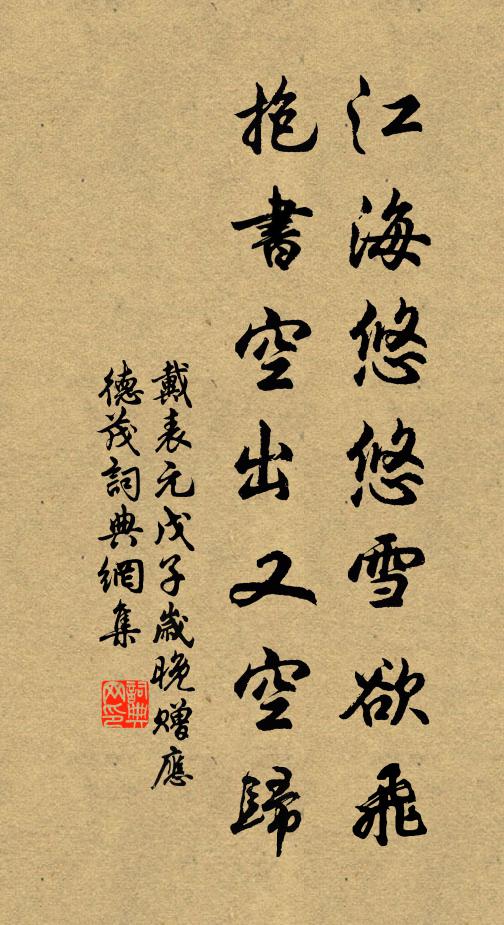 江海悠悠雪欲飛
抱書空出又空歸
戴表元戊子歲晚贈應
德茂詞典網集
詞典网印